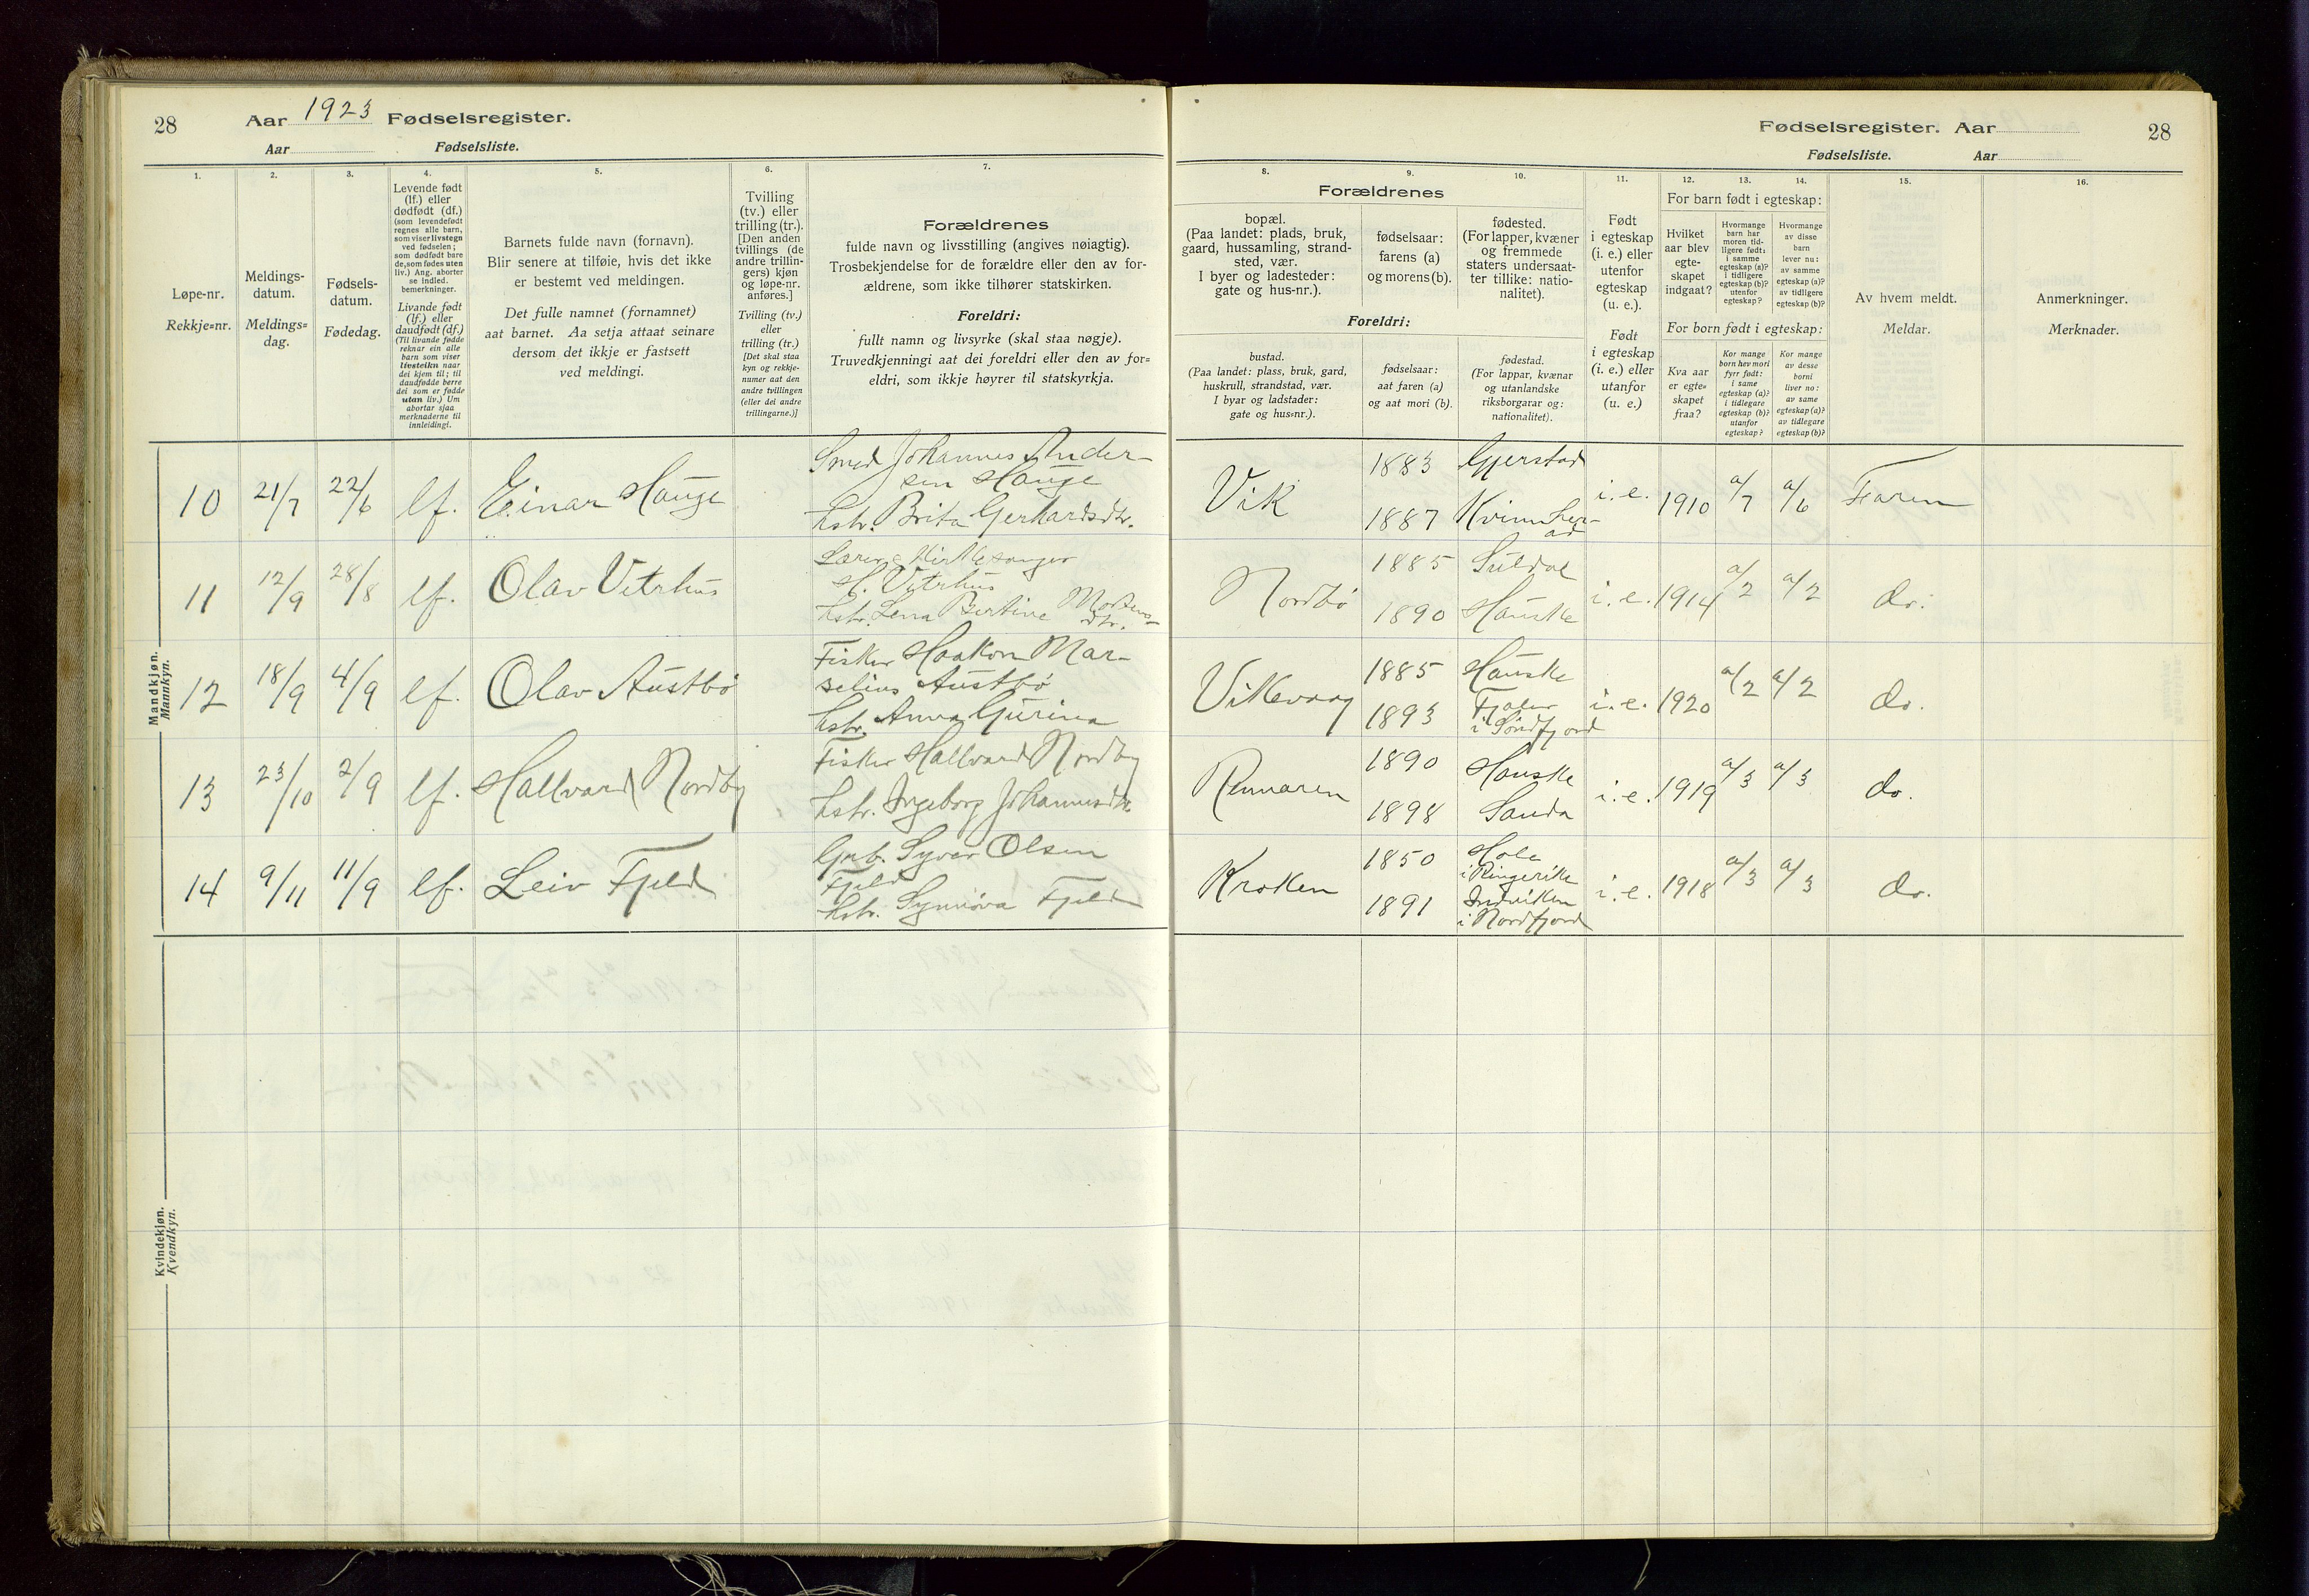 28
Aar 1923 Fødselsregister.
Aar Fødselsliste.
1.
Løpe-nr.
Rekkje=nr.
2.
Meldings-
datum.
Meldings=
dag.
3.
Fødsels-
datum.
Fødedag.
4.
Levende født
(lf.) eller
dødfødt (df.)
(som levendefødt
regnes alle barn,
som viser livstegn
ved fødselen;
som dødfødt bare
de, som fødes uten
liv.) Ang. aborter
se indled.
bemerkninger.
Livande født
(lf.) eller
daudfødt (df.)
(Til livande fødde
reknar ein alle
barn som viser
livsteikn naar
dei kjem til; til
daudfødde berre
dei som er fødde
utan liv.) Um
abortar sjaa
merknaderne til
innleidingi.
5.
Barnets fulde navn (fornavn).
Blir senere at tilføie, hvis det ikke
er bestemt ved meldingen.
Det fulle namnet (fornamnet)
aat barnet. Aa setja attaat seinare
dersom det ikkje er fastsett
ved meldingi.
6.
Tvilling
(tv.) eller
trilling (tr.).
[Den anden
tvillings (de
andre trillin-
gers) kjøn
og løpe-nr.
anføres.]
Tvilling (tv.)
eller
trilling (tr.)
[Det skal staa
kyn og rekkje-
numer aat den
andre tvillingen
(eller dei andre
trillingarne.)]
7.
Forældrenes
fulde navn og livsstilling (angives nøiagtig).
Trosbekjendelse for de forældre eller den av for-
ældrene, som ikke tilhører statskirken.
Foreldri:
fullt namn og livsyrke (skal staa nøgje).
Truvedkjenningi aat dei foreldri eller den av for=
eldri, som ikkje høyrer til statskyrkja.
Mandkjøn.
Mannkyn.
10 21/7 22/6 lf. Einar Hauge
Smed Johannes Ander-
sen Hauge
hstr. Brita Gerhardsdtr.
11 12/9 28/8 lf. Olav Vetrhus
Lærer & Kirkesanger
H. Vetrhus
hstr. Lena Bertine Mortens-
dtr.
12 18/9 4/9 lf. Olav Austbø
Fisker Haakon Mar-
selius Austbø
hstr. Anna Gurina
13 23/10 2/9 lf. Hallvard Nordby
Fisker Hallvard Nordby
hstr. Ingeborg Johannesdtr.
14 9/11 11/9 lf. Leiv Fjeld
Gbr. Syver Olsen
Fjeld
hstr. Synnøva Fjeld
Kvindekjøn.
Kvendkyn.
Fødselsregister. Aar
28
Fødselsliste. Aar
8.
Forældrenes
bopæl.
(Paa landet: plads, bruk,
gaard, hussamling, strand-
sted, vær.
I byer og ladesteder:
gate og hus-nr.).
Foreldri:
bustad.
(Paa landet: plass, bruk, gard,
huskrull, strandstad, vær.
I byar og ladstader:
gate og hus=nr.).
9.
fødselsaar:
farens (a)
og morens (b).
fødselsaar:
aat faren (a)
og aat mori (b).
10.
fødested.
(For lapper, kvæner
og fremmede
staters undersaat-
ter tillike: natio-
nalitet).
fødestad.
(For lappar, kvænar
og utanlandske
riksborgarar og:
nationalitet).
11.
Født
i egteskap
(i. e.) eller
utenfor
egteskap
(u. e.).
Født
i egteskap
(i. e.) eller
utanfor
(u. e.)
For barn født i egteskap:
12.
Hvilket
aar blev
egte-
skapet
indgaat?
13.
Hvormange
barn har
moren tid-
ligere født:
i samme
egteskap (a)?
i tidligere
egteskap (b)?
utenfor
egteskap?
14.
Hvormange
av disse
barn
lever nu:
av samme
egteskap (a)?
av tidligere
egteskap (b)?
For born født i egteskap:
Kva aar
er egte=
skapet
fraa?
Kor mange
born hev mori
fyrr født:
i same
egteskap (a)?
i tidlegare
egteskap (b)?
utanfor
egteskap?
Kor mange
av desse
borni
liver no:
av same
egteskap (a)?
av tidlegare
egteskap (b)?
15.
Av hvem meldt.
Meldar.
16.
Anmerkninger.
Merknader.
Vik
1883 Gjerstad
1887 Kvinnher-
ad
i. e. 1910 a/7 a/6 Faren
Nordbø
1885 Suldal
1890 Hauske
i. e. 1914 a/2 a/2 do.
Vikevaag
1885 Hauske
1893 Fjaler
i Søndfjord
i. e. 1920 a/2 a/2 do.
Rennaren
1890 Hauske
1898 Sauda
i. e. 1919 a/3 a/3 do.
Kroken
1850 Hole
i Ringerike
1891 Indviken
i Nordfjord
i. e. 1918 a/3 a/3 do.